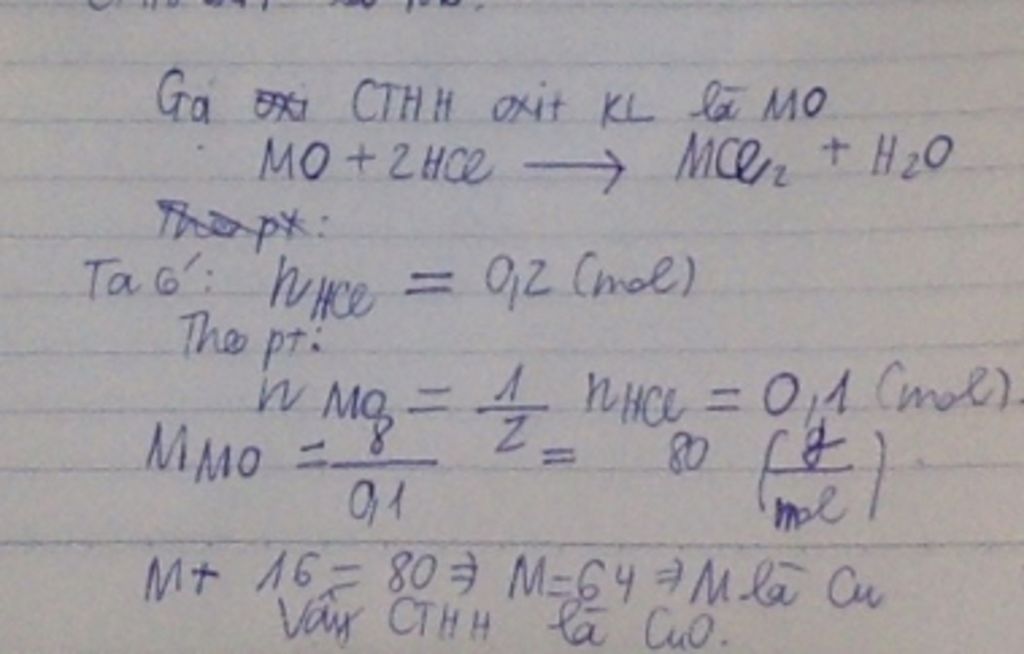 Gọi CTHH oxit KL là MO
MO + 2HCl → MCl₂ + H₂O
Ta có: nHCl = 0,2 (mol)
Theo pt:
n MO = 1/2 nHCl = 0,1 (mol).
MMO = 8/0,1 = 80 (g/mol)
M + 16 = 80 ⇒ M = 64 ⇒ M là Cu
Vậy CTHH là CuO.